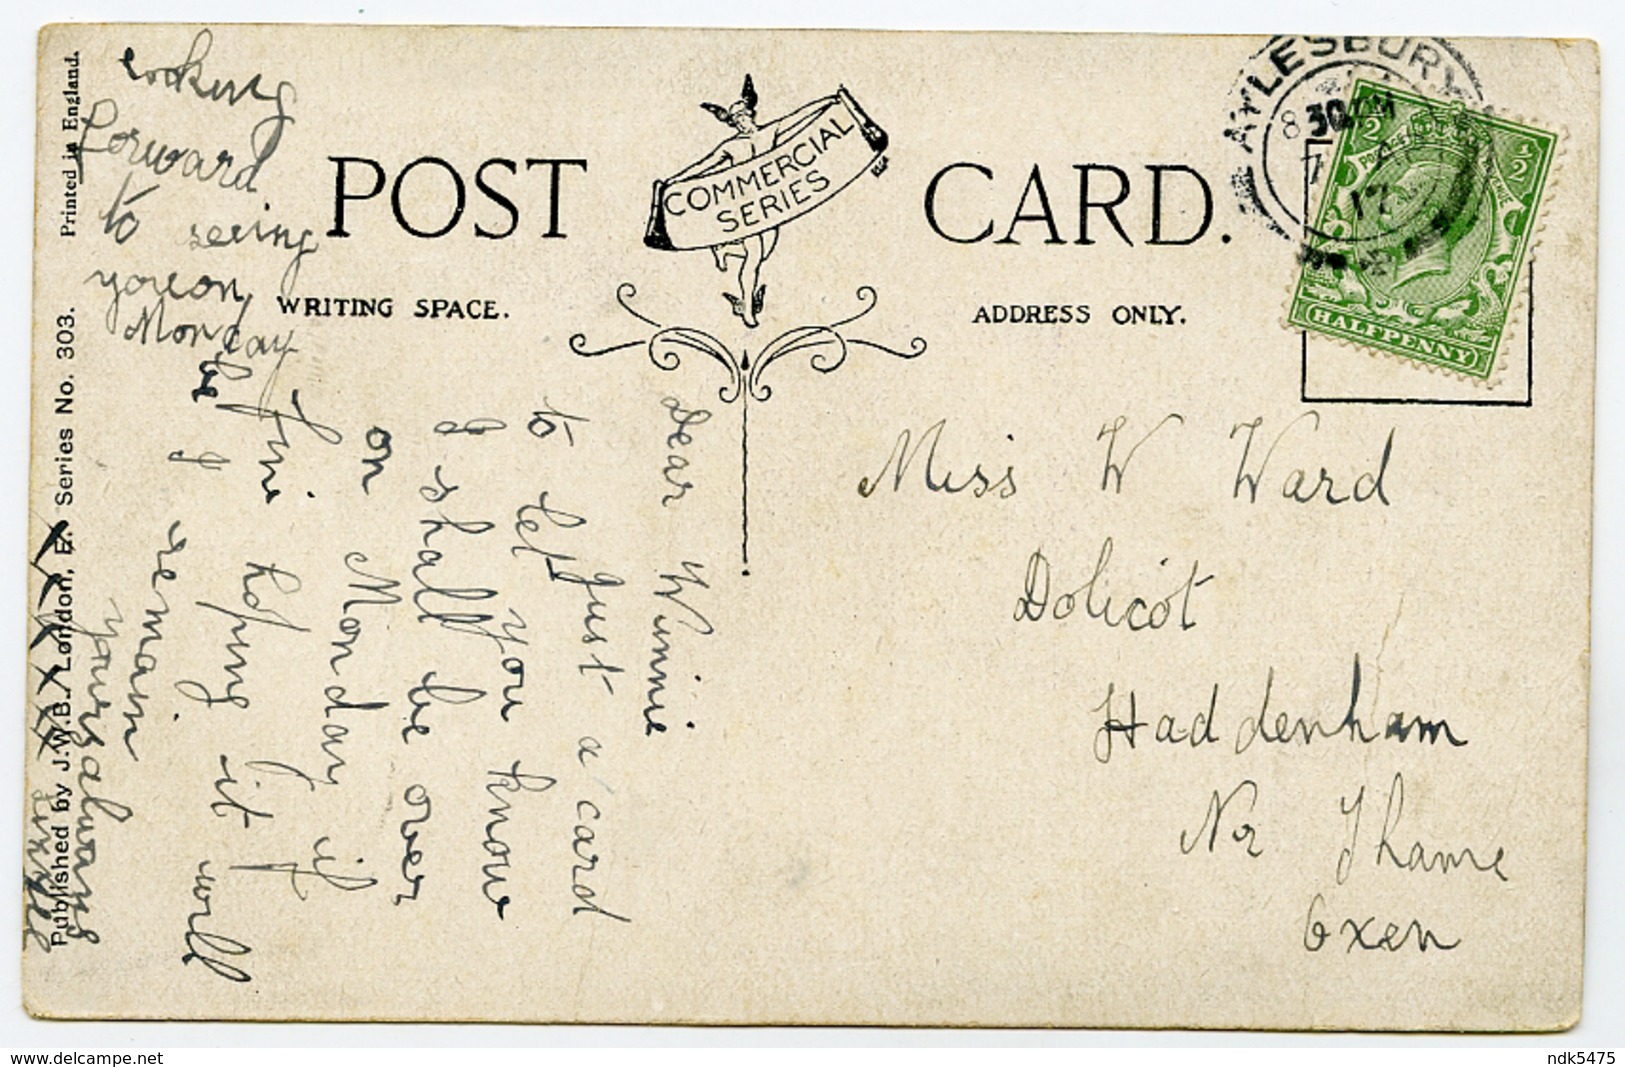 Printed in England.
Published by J.W.B. London, E. Series No. 303.
POST CARD.
COMMERCIAL
SERIES
WRITING SPACE.
ADDRESS ONLY.
AYLESBURY
8 30 PM
17
HALFPENNY
Looking
Forward
to seeing
you on
Monday
Dear Winnie
Just a card
to let you know
I shall be over
on Monday if
fine hoping it will
be I remain
yours always
Miss W Ward
Dolicot
Haddenham
Nr Thame
Oxen
www.delcampe.net
ndk5475